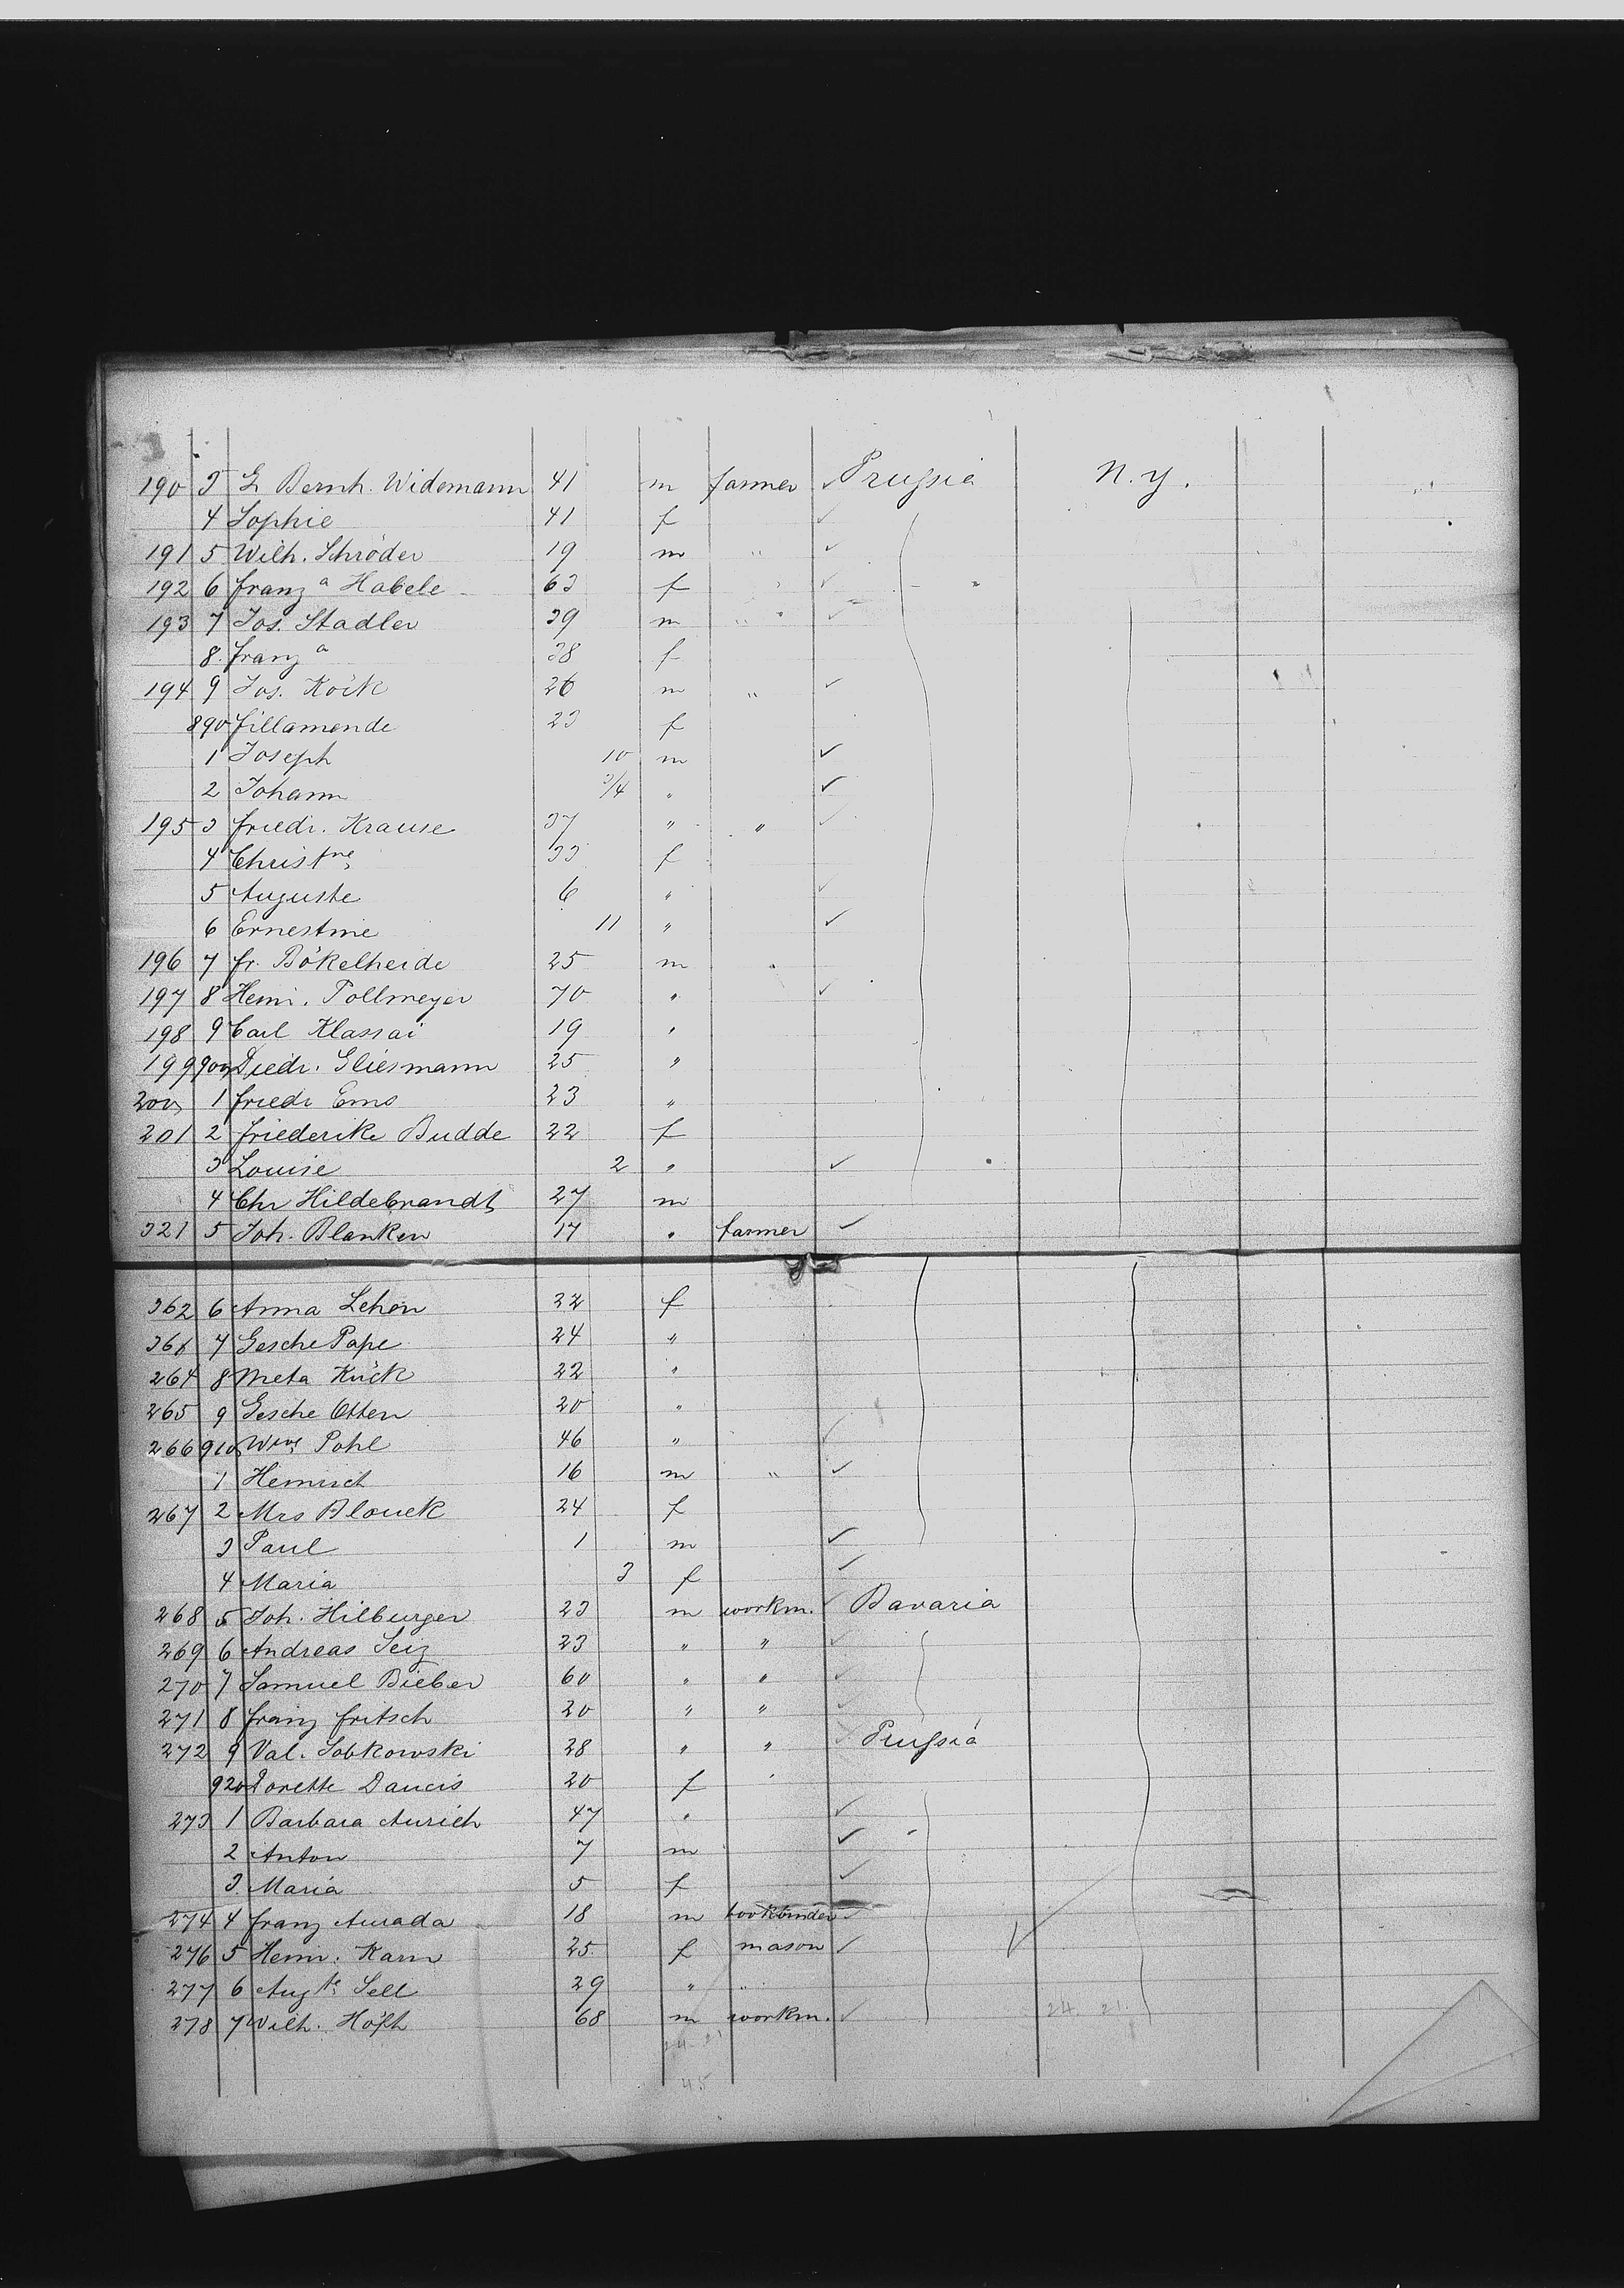 190 3 G Bernh. Widemann 41 m farmer ✓ Prussia N.Y.
4 Sophie 41 f ✓
191 5 Wilh. Schröder 19 m " ✓
192 6 Franz a Habele 63 f ✓
193 7 Jos. Stadler 39 m " ✓
8. Franz a 38 f
194 9 Jos. Köck 26 m " ✓
890 Fillamende 23 f
1 Joseph 10 m ✓
2 Johann 3/4 " ✓
195 3 Friedr. Krause 37 " " ✓
4 Christne 33 f
5 Auguste 6 " ✓
6 Ernestine 11 " ✓
196 7 Fr. Bökelheide 25 m "
197 8 Heinr. Pollmeyer 70 " ✓
198 9 Carl Klassai 19 "
199 900 Diedr. Gliesmann 25 "
200 1 Friedr Ems 23 "
201 2 Friederike Budde 22 f
3 Louise 2 " ✓
4 Chr Hildebrandt 27 m
321 5 Joh. Blanken 17 " farmer ✓
362 6 Anna Lehen 22 f
7 Gesche Pape 24 "
264 8 Meta Kück 22 "
265 9 Gesche Otten 20 "
266 910 Wwe Pohl 46 " ✓
1 Heinrich 16 m " ✓
267 2 Mrs Blouek 24 f
3 Paul 1 m ✓
4 Maria 3 f ✓
268 5 Joh. Hilburger 23 m workm. ✓ Bavaria
269 6 Andreas Seiz 23 " " ✓
270 7 Samuel Bieber 60 " " ✓
271 8 Franz Fritsch 20 " " ✓
272 9 Val. Sobkowski 28 " " ✓ Prussia
920 Lorette Daucis 20 f
273 1 Barbara Aurich 47 " ✓
2 Anton 7 m ✓
3. Maria 5 f ✓
274 4 Franz Aurada 18 m bookbinder ✓
276 5 Heinr. Karn 25 f mason ✓
277 6 Augte Sell 29 " "
278 7 Wilh. Höft 68 m workm. ✓ 24. 21.
45